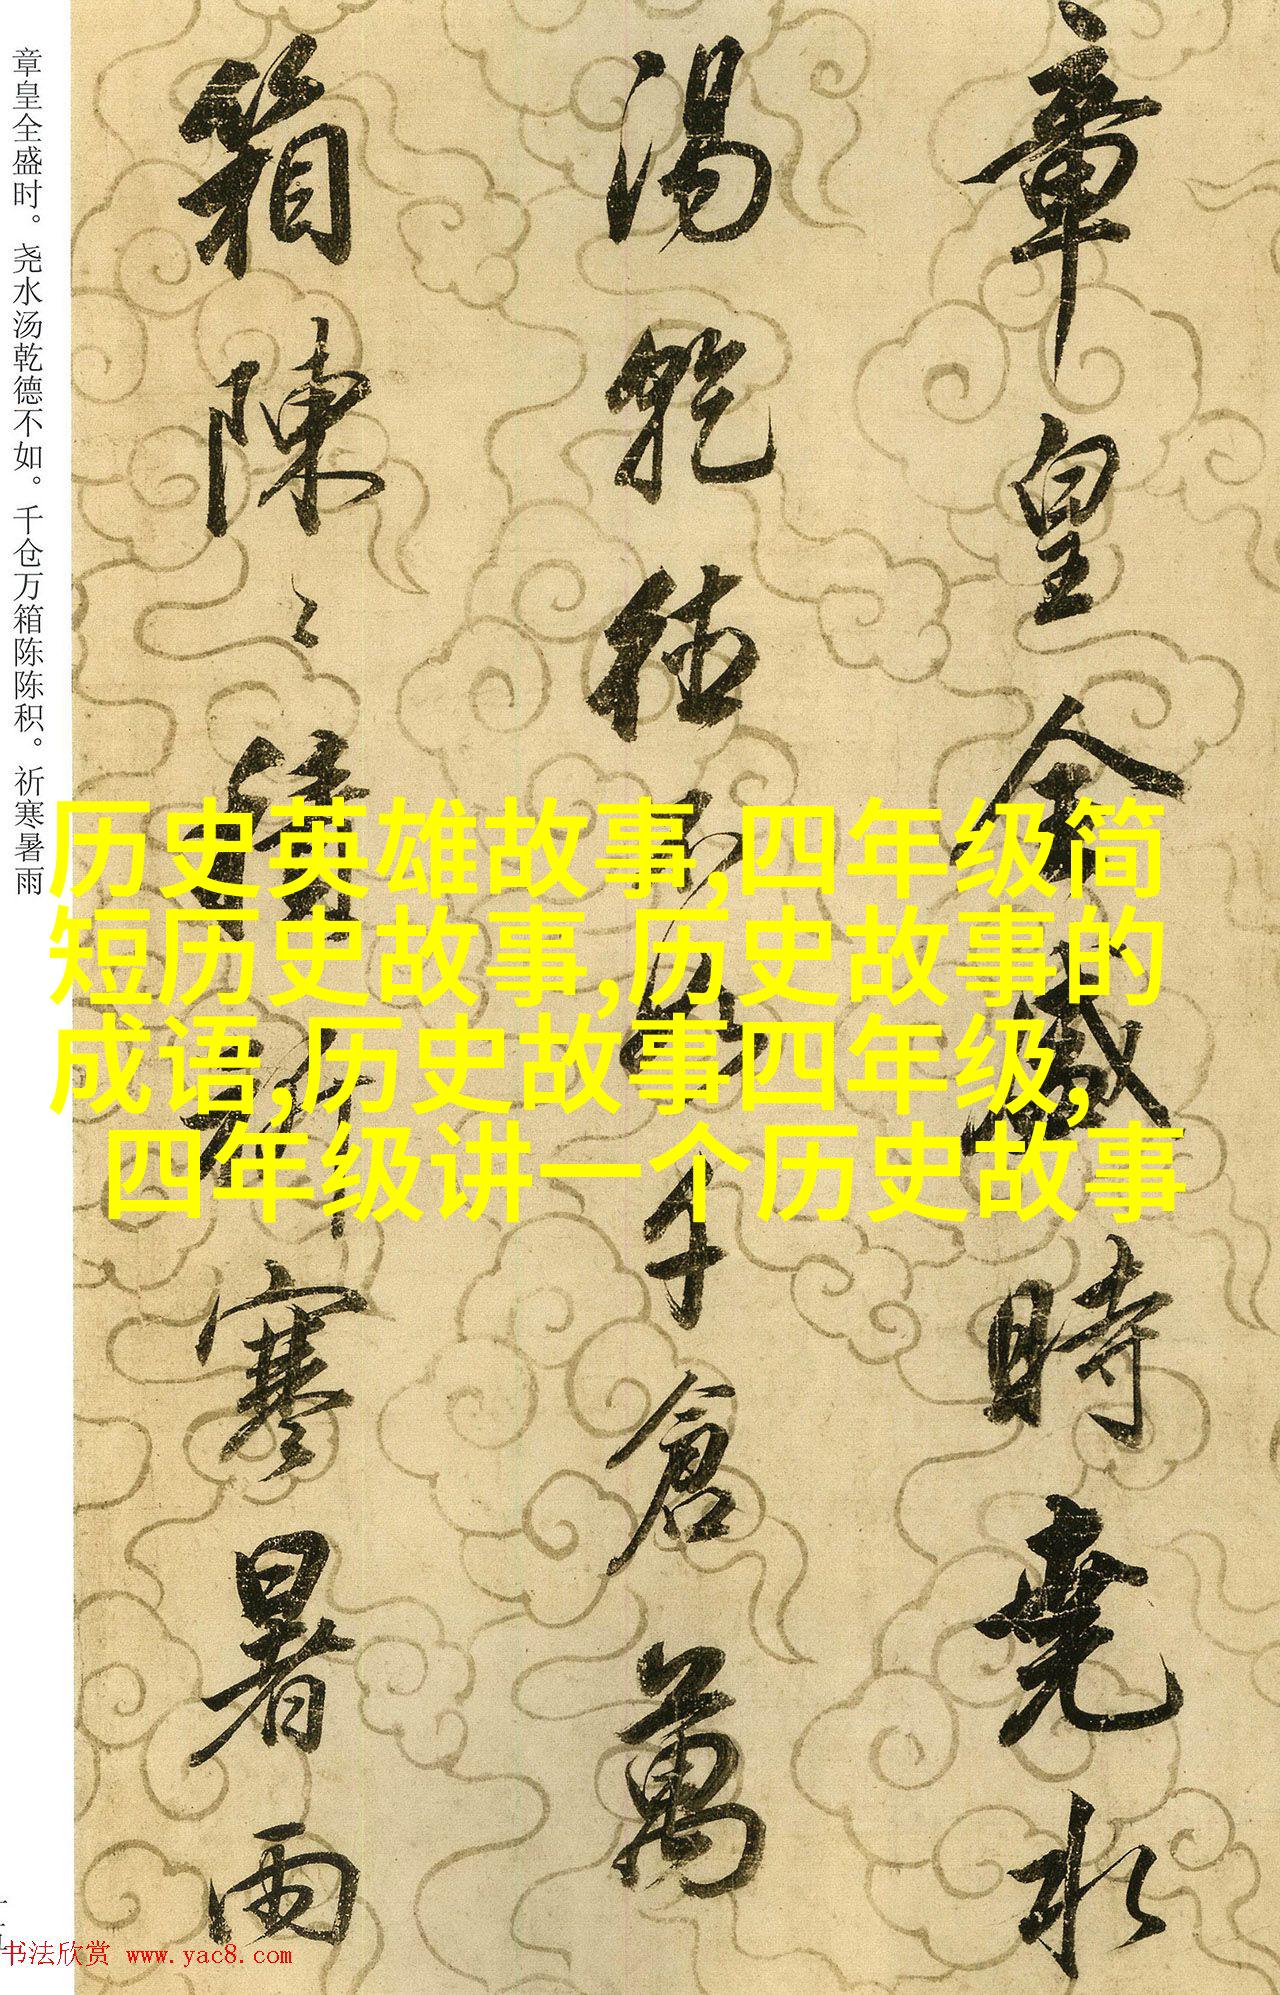 章皇全盛時堯水
湯乹德不如千倉萬
箱陳〻積祈寒暑雨
章皇全盛时。尧水汤乾德不如。千仓万箱陈陈积。祈寒暑雨
历史英雄故事,四年级简
短历史故事,历史故事的
成语,历史故事四年级,
四年级讲一个历史故事
书法欣赏 www.yac8.com